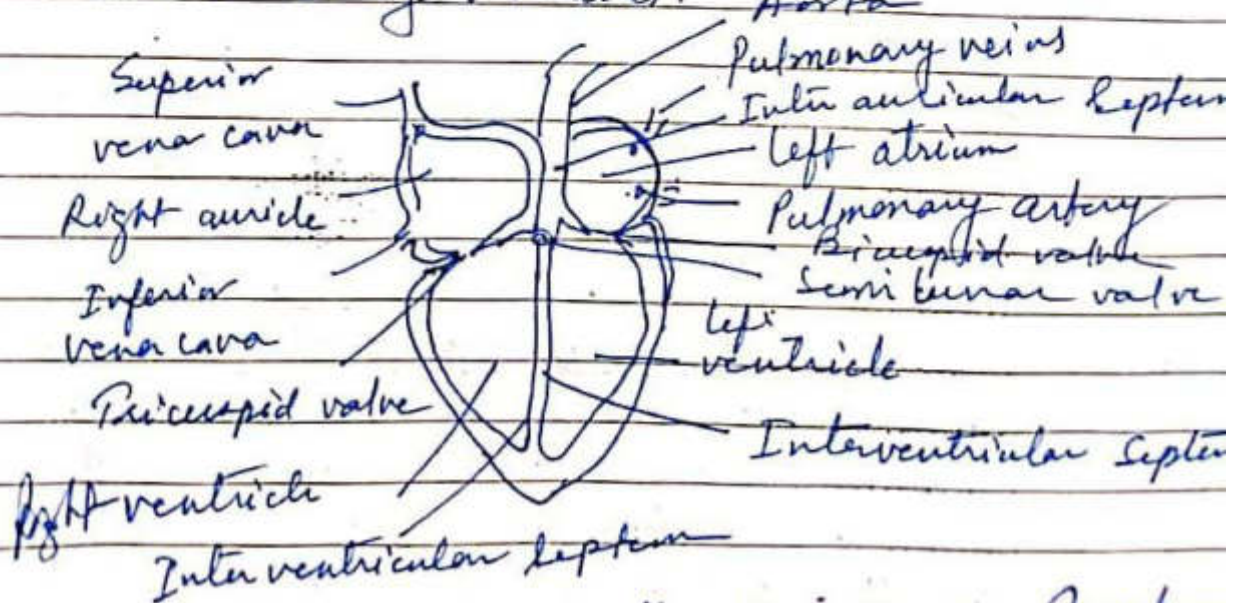 Aorta
Superior
vena cava
Right auricle
Inferior
vena cava
Tricuspid valve
Right ventricle
Interventricular septum
Pulmonary veins
Inter auricular Septum
left atrium
Pulmonary artery
Bicuspid valve
Semi lunar valve
left
ventricle
Interventricular Septum